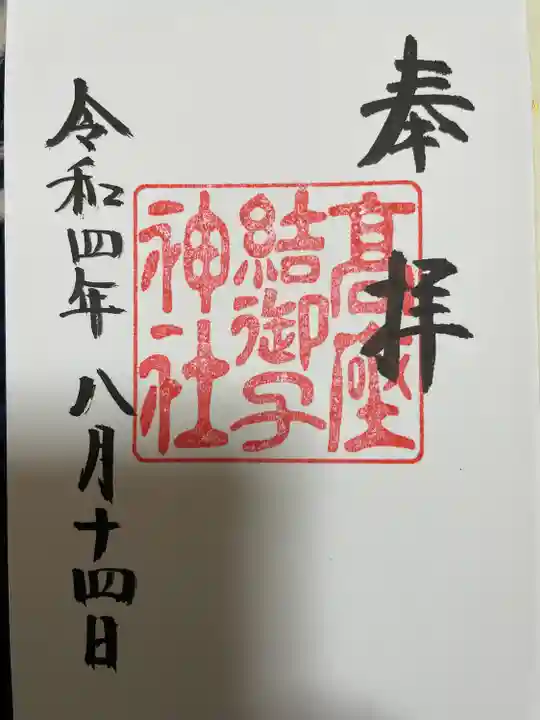 奉拝
高座
結御子
神社
令和四年 八月十四日